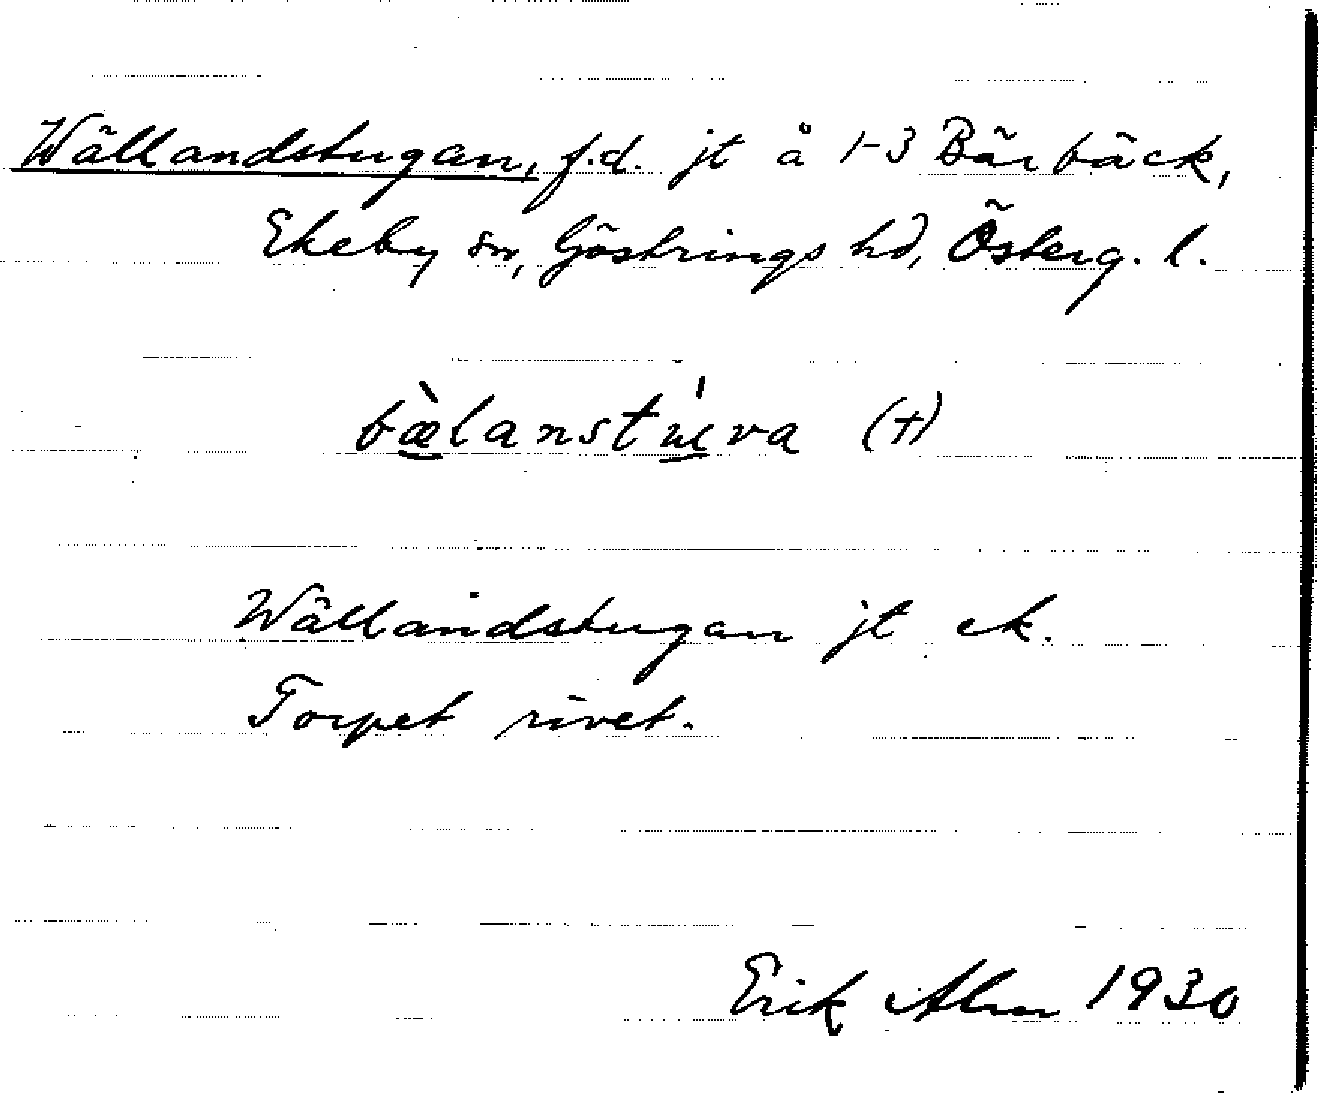 Wällandstugan, f.d. jt å 1-3 Bärbäck,
Ekeby sn, Göstrings hd, Österg. l.
bæ̀lanstúva (†)
Wällandstugan jt ek.
Torpet rivet.
Erik Alm 1930